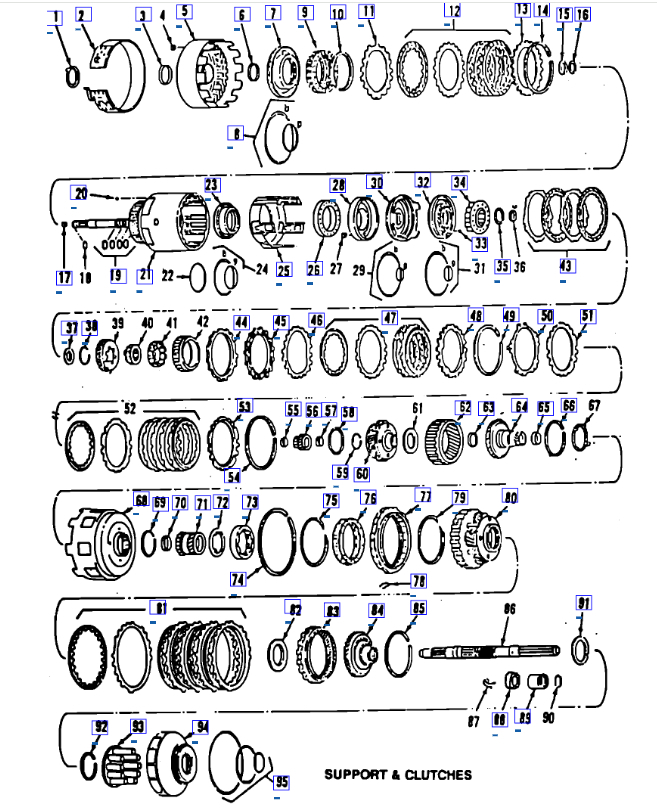 1 2 3 4 5 6 7 9 10 11 12 13 14 15 16
8
20 23 28 30 32 34
17 18 19 21 22 24 25 26 27 29 31 33 35 36 43
37 38 39 40 41 42 44 45 46 47 48 49 50 51
52 53 55 56 57 58 61 62 63 64 65 66 67
54 59 60
68 69 70 71 72 73 75 76 77 79 80
74 78
81 82 83 84 85 86 91
87 88 89 90
92 93 94
95
SUPPORT & CLUTCHES